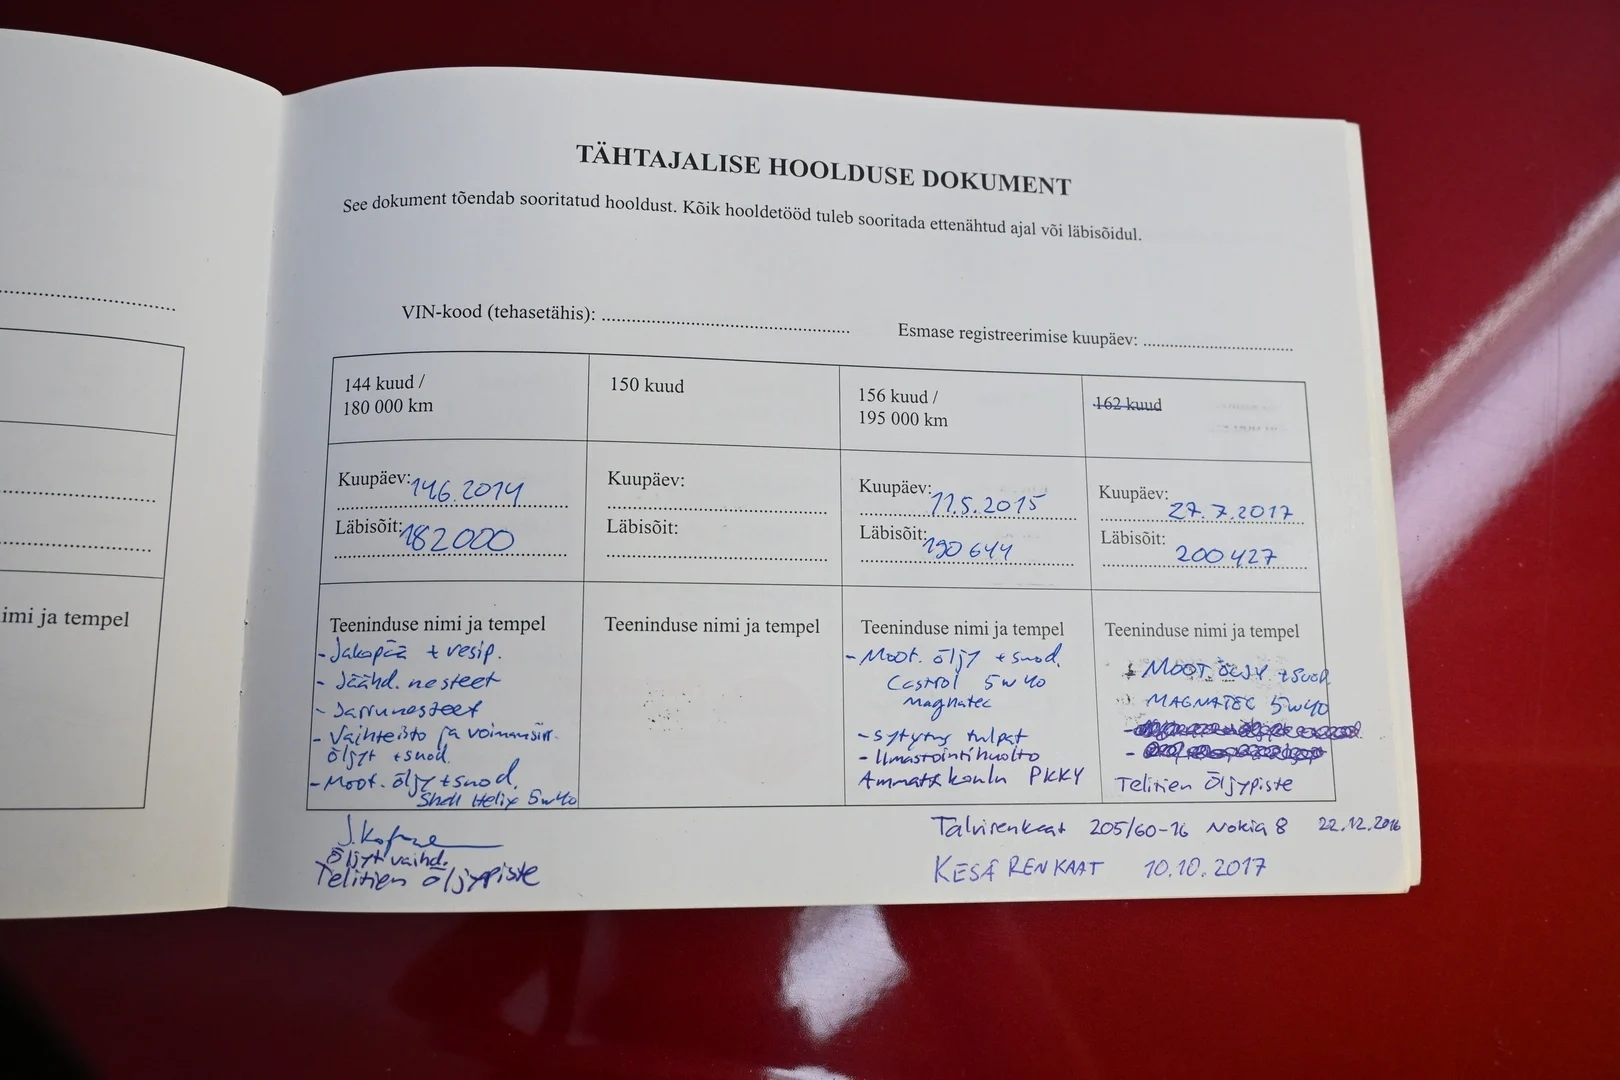 TÄHTAJALISE HOOLDUSE DOKUMENT
See dokument tõendab sooritatud hooldust. Kõik hooldetööd tuleb sooritada ettenähtud ajal või läbisõidul.
VIN-kood (tehasetähis):
Esmase registreerimise kuupäev:
144 kuud /
180 000 km
Kuupäev: 14.6.2014
Läbisõit: 182000
Teeninduse nimi ja tempel
- Jakopää + vesip.
- Jäähd. nesteet
- Jarrunesteet
- Vaihteisto ja voimansiir.
öljyt + suod.
- Moot. öljy + suod.
Shell Helix 5w40
150 kuud
Kuupäev:
Läbisõit:
Teeninduse nimi ja tempel
156 kuud /
195 000 km
Kuupäev: 11.5.2015
Läbisõit: 190 644
Teeninduse nimi ja tempel
- Moot. öljy + suod.
Castrol 5w40
Magnatec
- Sytytys tulpat
- Ilmastointihuolto
Ammattikoulu PKKY
162 kuud
Kuupäev: 27.7.2017
Läbisõit: 200 427
Teeninduse nimi ja tempel
MOOT. ÖLJY + SUOD
MAGNATEC 5W40
Telitien Öljypiste
Öljyt vaihd.
Telitien Öljypiste
Talvirenkaat 205/60-16 Nokia 8 22.12.2016
KESÄ RENKAAT 10.10.2017
imi ja tempel